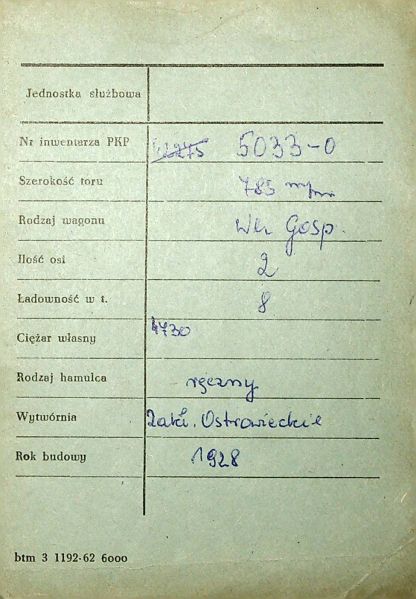 Jednostka służbowa
Nr inwentarza PKP 5033-0
Szerokość toru 785 m/m
Rodzaj wagonu Wk Gosp.
Ilość osi 2
Ładowność w t. 8
Ciężar własny 4730
Rodzaj hamulca ręczny
Wytwórnia Zakł. Ostrowieckie
Rok budowy 1928
btm 3 1192-62 6000